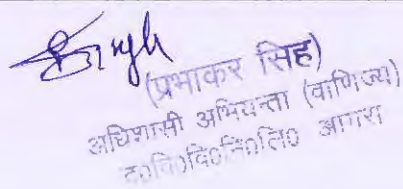 Singh
(प्रभाकर सिंह)
अधिशासी अभियन्ता (वाणिज्य)
द०वि०वि०नि०लि० आगरा